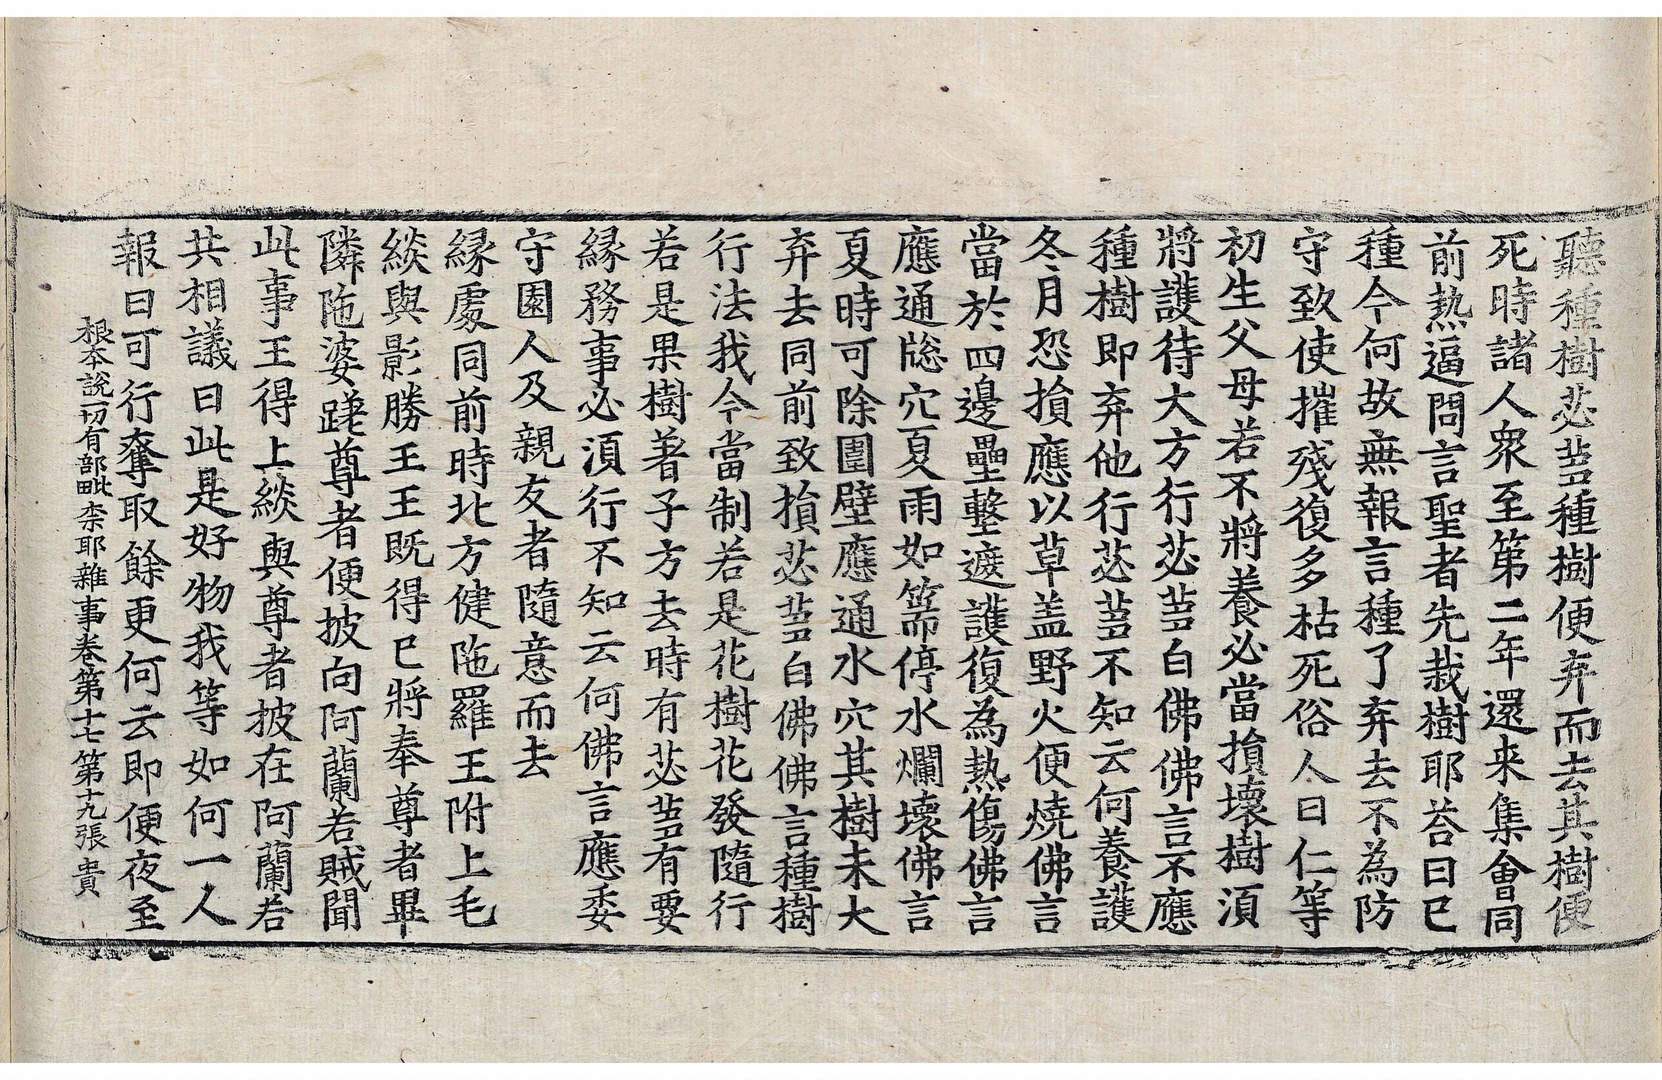 聽種樹苾蒭種樹便弃而去其樹便
死時諸人衆至第二年還来集會同
前熱逼問言聖者先栽樹耶荅曰已
種今何故無報言種了弃去不為防
守致使摧殘復多枯死俗人曰仁等
初生父母若不將養必當損壞樹湏
將護待大方行苾蒭白佛佛言不應
種樹即弃他行苾蒭不知云何養護
冬月恐損應以草盖野火便燒佛言
當於四邊壘墼遮護復為熱傷佛言
應通牎穴夏雨如篅停水爛壞佛言
夏時可除圍壁應通水穴其樹未大
弃去同前致損苾蒭白佛佛言種樹
行法我今當制若是花樹花發隨行
若是果樹著子方去時有苾蒭有要
緣務事必湏行不知云何佛言應委
守園人及親友者隨意而去
緣處同前時北方健陁羅王附上毛
緂與影勝王王既得已將奉尊者畢
隣陁婆蹉尊者便披向阿蘭若賊聞
此事王得上緂與尊者披在阿蘭若
共相議曰此是好物我等如何一人
報曰可行奪取餘更何云即便夜至
根本說一切有部毗柰耶雜事卷第十七 第十九張 貴